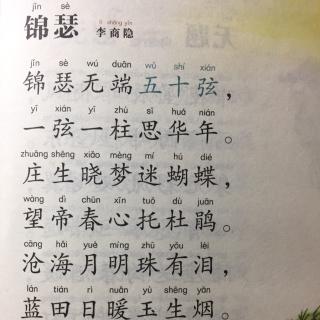 jǐn sè
锦瑟 
lǐ shāng yǐn
李商隐
jǐn sè wú duān wǔ shí xián
锦瑟无端五十弦，
yī xián yī zhù sī huá nián
一弦一柱思华年。
zhuāng shēng xiǎo mèng mí hú dié
庄生晓梦迷蝴蝶，
wàng dì chūn xīn tuō dù juān
望帝春心托杜鹃。
cāng hǎi yuè míng zhū yǒu lèi
沧海月明珠有泪，
lán tián rì nuǎn yù shēng yān
蓝田日暖玉生烟。